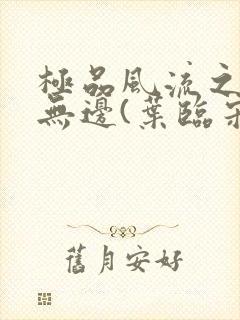 極品風流之
無邊(葉臨
舊月安好